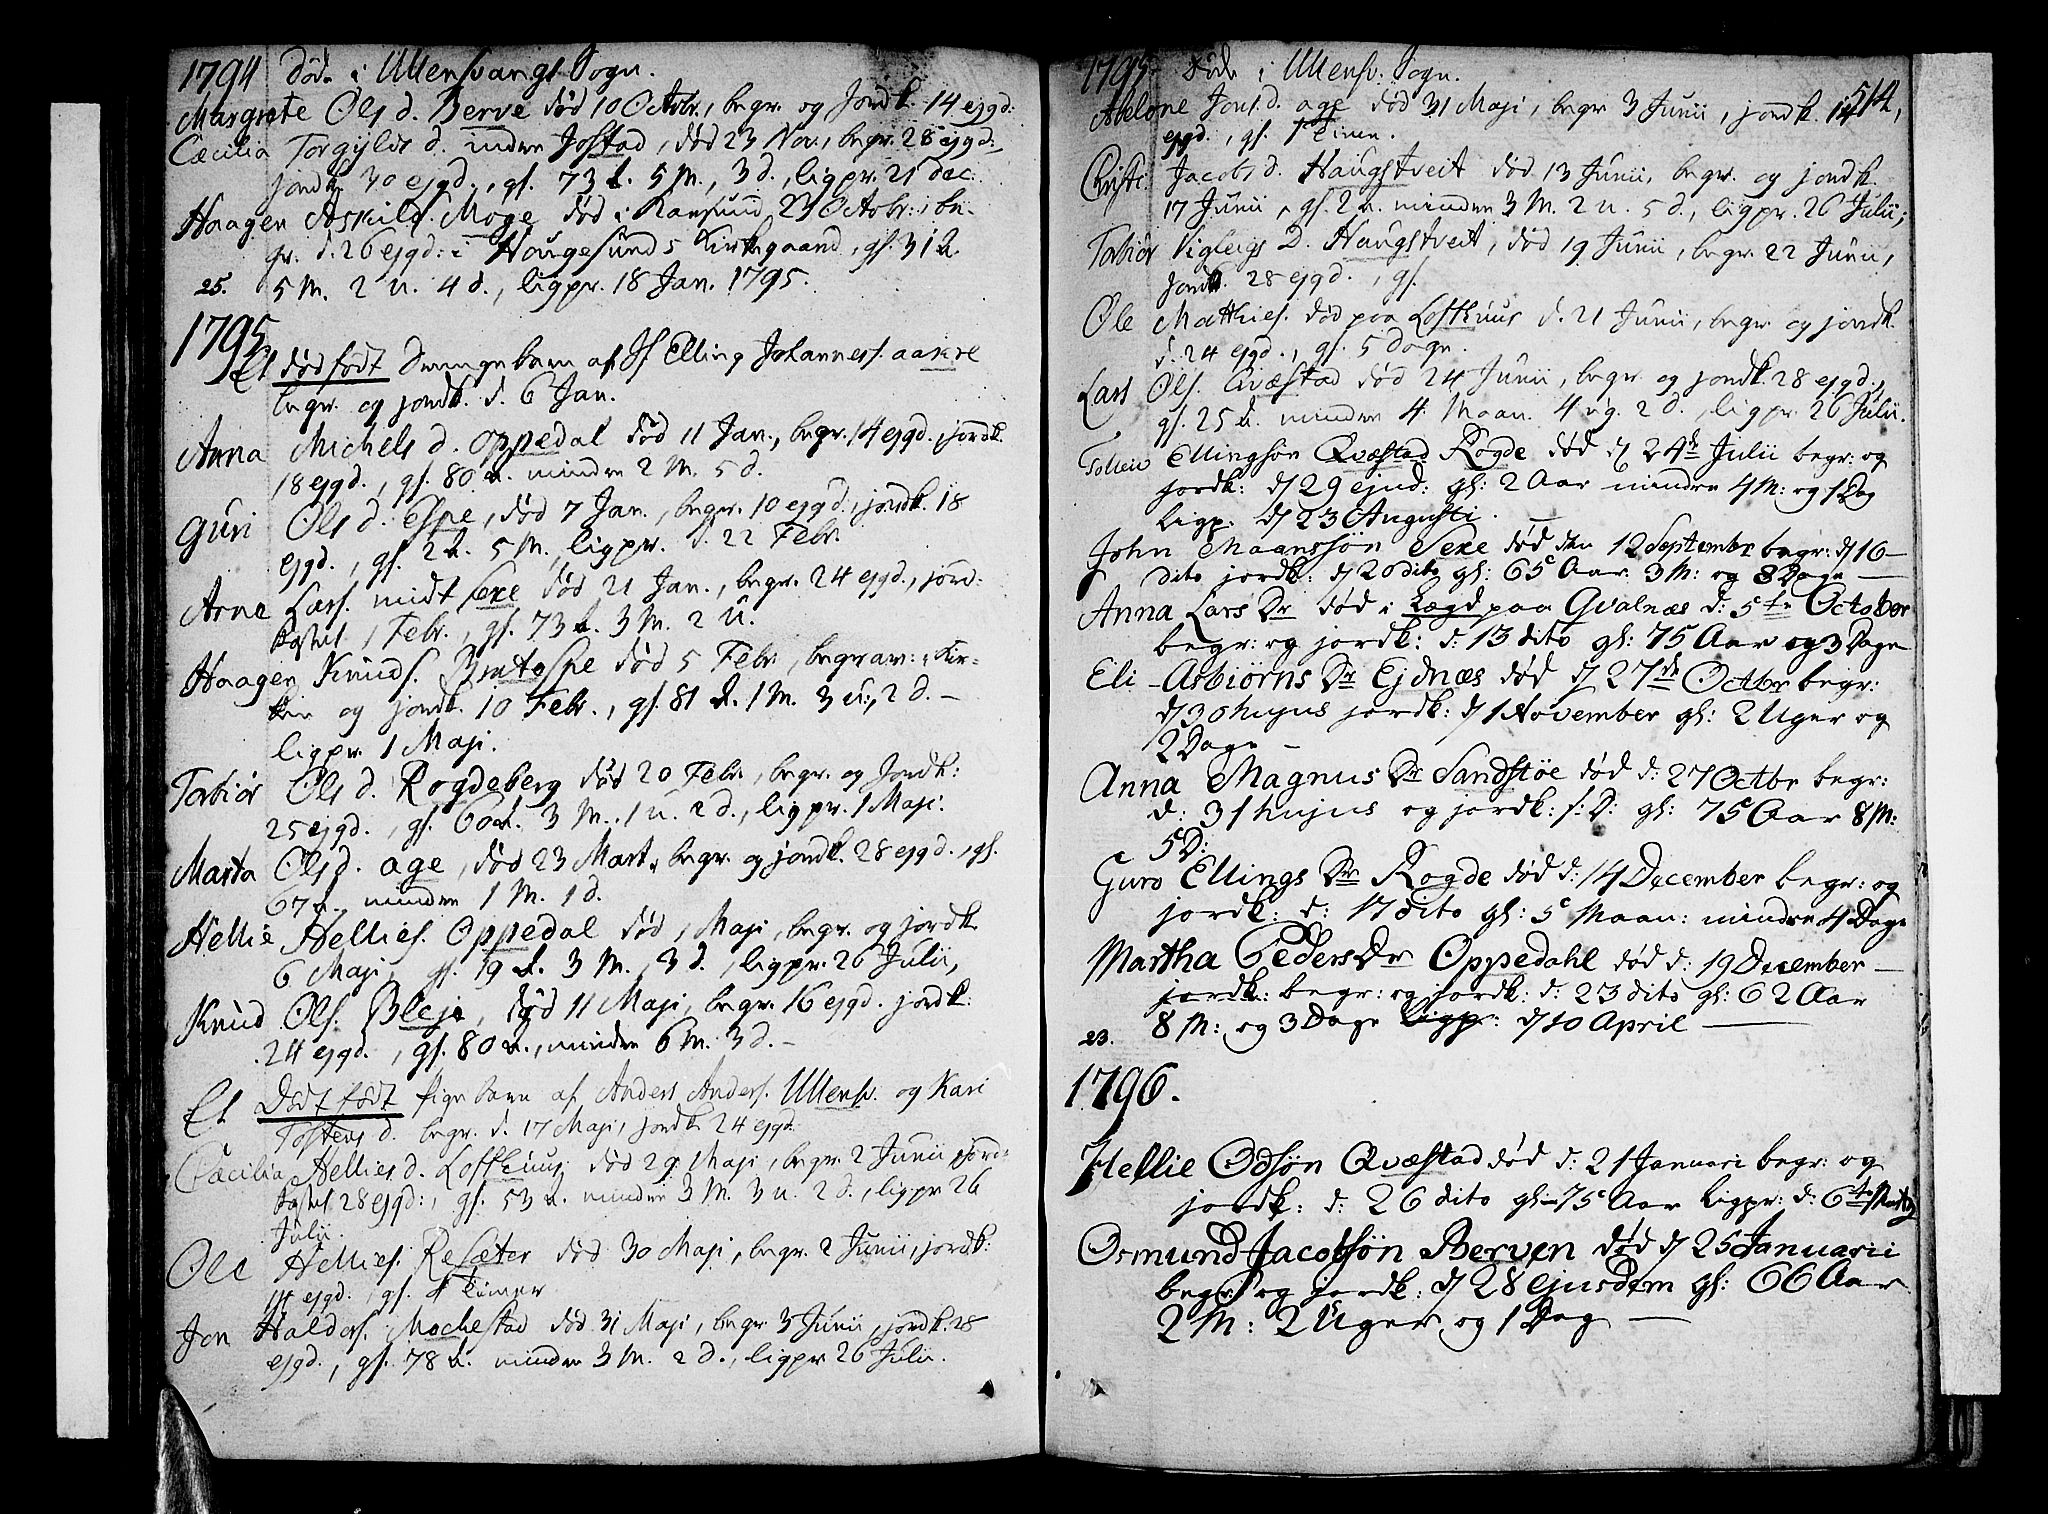 1794 Døde i Ullensvangs Sogn.
Margrete Ols d. Berve død 10 Octobr., begr. og Jordk. 14 ejgd:
Cæcilia Torgylds d. indre Jostad, død 23 Nov., begr. 28 ejgd.,
jordk. 30 ejgd., gl. 73 A. 5 M., 3 d., ligpr. 21 Dec.
Haagen Askilds. Moge død i 23 Octobr: be-
gr. d. 26 ejgd: i Haugesunds Kirkegaard, gl. 31 A.
25. 5 M. 2 U. 4 d., ligpr. 18 Jan. 1795.
1795
Et død født Drengebarn af Elling Johannesf. aase
begr. og jordk. d. 6 Jan.
Anna Michels d. Oppedal død 11 Jan., begr. 14 ejgd., jordk.
18 ejgd., gl. 80 A. mindre 2 M. 5 d.
Guri Ols d. Espe, død 7 Jan., begr. 10 ejgd., jordk. 18
ejgd., gl. 2 A. 5 M., ligpr. d. 22 Febr.
Arne Larsf. midt Sexe død 21 Jan., begr. 24 ejgd., jord-
kastet 1 Febr., gl. 73 A. 3 M. 2 U.
Haagen Knudsf. Bratespe død 5 Febr., begrav: i Kir-
ken og jordk. 10 Febr., gl. 81 A. 1 M. 3 U., 2 d. –
ligpr. 1 Maji.
Torbiør Ols d. Rogdeberg død 20 Febr., begr. og Jordk:
25 ejgd., gl. 60 A. 3 M. 1 U. 2 d., ligpr. 1 Maji.
Marta Ols d. age, død 23 Mart., begr. og jordk. 28 ejgd., gl.
67 A., mindre 1 M. 1 d.
Hellie Hellief. Oppedal død 1 Maji, begr. og jordk.
6 Maji, gl. 19 A. 3 M. 3 d., ligpr. 26 Julii,
Knud Olsf. Bleje, død 11 Maji, begr. 16 ejgd. jordk:
24 ejgd., gl. 80 A., mindre 6 M. 3 d. –
Et Død født Pigebarn af Anders Andersf. Ullensv. og Kari
Tostens d. begr. d. 17 Maji, jordk. 24 ejgd.
Cæcilia Hellies d. Lofthuus død 29 Maji, begr. 2 Junii, jord-
kastet 28 ejgd:, gl. 53 A. mindre 3 M. 3 U. 2 d., ligpr. 26
Julii.
Ole Hellief. Resæter død 30 Maji, begr. 2 Junii, jordk:
14 ejgd., gl. 4 timer
Jon Haldorsf. Mochestad død 31 Maji, begr. 3 Junii, jordk. 28
ejgd., gl. 78 A. mindre 3 M. 2 d., ligpr. 26 Julii.
1795 Døde i Ullensv. Sogn.
514,
Abelone Jons d. age død 31 Maji, begr. 3 Junii, jordk. 14
ejgd., gl. 1 time.
Christi Jacobs d. Haugstveit død 13 Junii, begr. og jordk.
17 Junii, gl. 2 A. mindre 3 M. 2 U. 5 d., ligpr. 26 Julii;
Torbiør Vigleigs D. Haugstveit, død 19 Junii, begr. 22 Junii,
Jordk. 28 ejgd., gl.
Ole Mathief. død paa Lofthuus d. 21 Junii, begr. og jordk.
d. 24 ejgd., gl. 5 Dage.
Lars Olsf. Qvæstad død 24 Junii, begr. og jordk. 28 ejgd.,
gl. 25 A. mindre 4 Maan. 4 ug. 2 d., ligpr. 26 Julii.
Tollew Ellingsøn Qvæstad Rogde død d 24de Julii begr: og
jordk: d 29 ejud: gl: 2 Aar mindre 4 M: og 1 Dag
Ligp: d 23 Augusti.
John Maanssøn Sexe død den 12 Septembr begr: d 16 –
dito jordk: d 20 dito gl: 65 Aar 3 M: og 8 Dage –
Anna Lars Dr død i Lægd paa Qvalnæs d: 5te October
begr: og jordk: d: 13 dito gl: 75 Aar og 3 Dage
Eli Asbiørns Dr Ejdnæs død d 27de Octbr begr:
d 30 hujus jordk: d 1 November gl: 2 Uger og
2 Dage –
Anna Magnus Dr Sandstøe død d: 27 Octbr begr:
d: 31 hujus og jordk: s: D: gl: 75 Aar 8 M:
5 D:
Guro Ellings Dr Rogde død d: 14 December begr: og
jordk: d: 17 dito gl: 5 Maan: mindre 4 Dage
Martha Peders Dr Oppedahl død d: 19 December –
jordk: begr: og jordk: d: 23 dito gl: 62 Aar
23. 8 M: og 3 Dage Ligp: d 10 April –
1796.
Hellie Odsøn Qvæstad død d: 21 Januari begr: og
jordk: d: 26 dito gl: 75 Aar Ligpr: d: 6te Martij
Osmund Jacobsøn Berven død d 25 Januarii
begr: og jordk: d 28 ejusdem gl: 66 Aar
2 M: 2 Uger og 1 Dag –